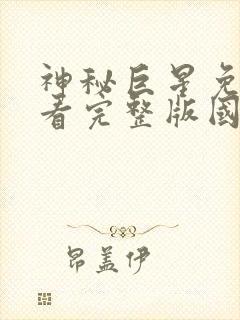 神秘巨星免
看完整版國
昂盖伊